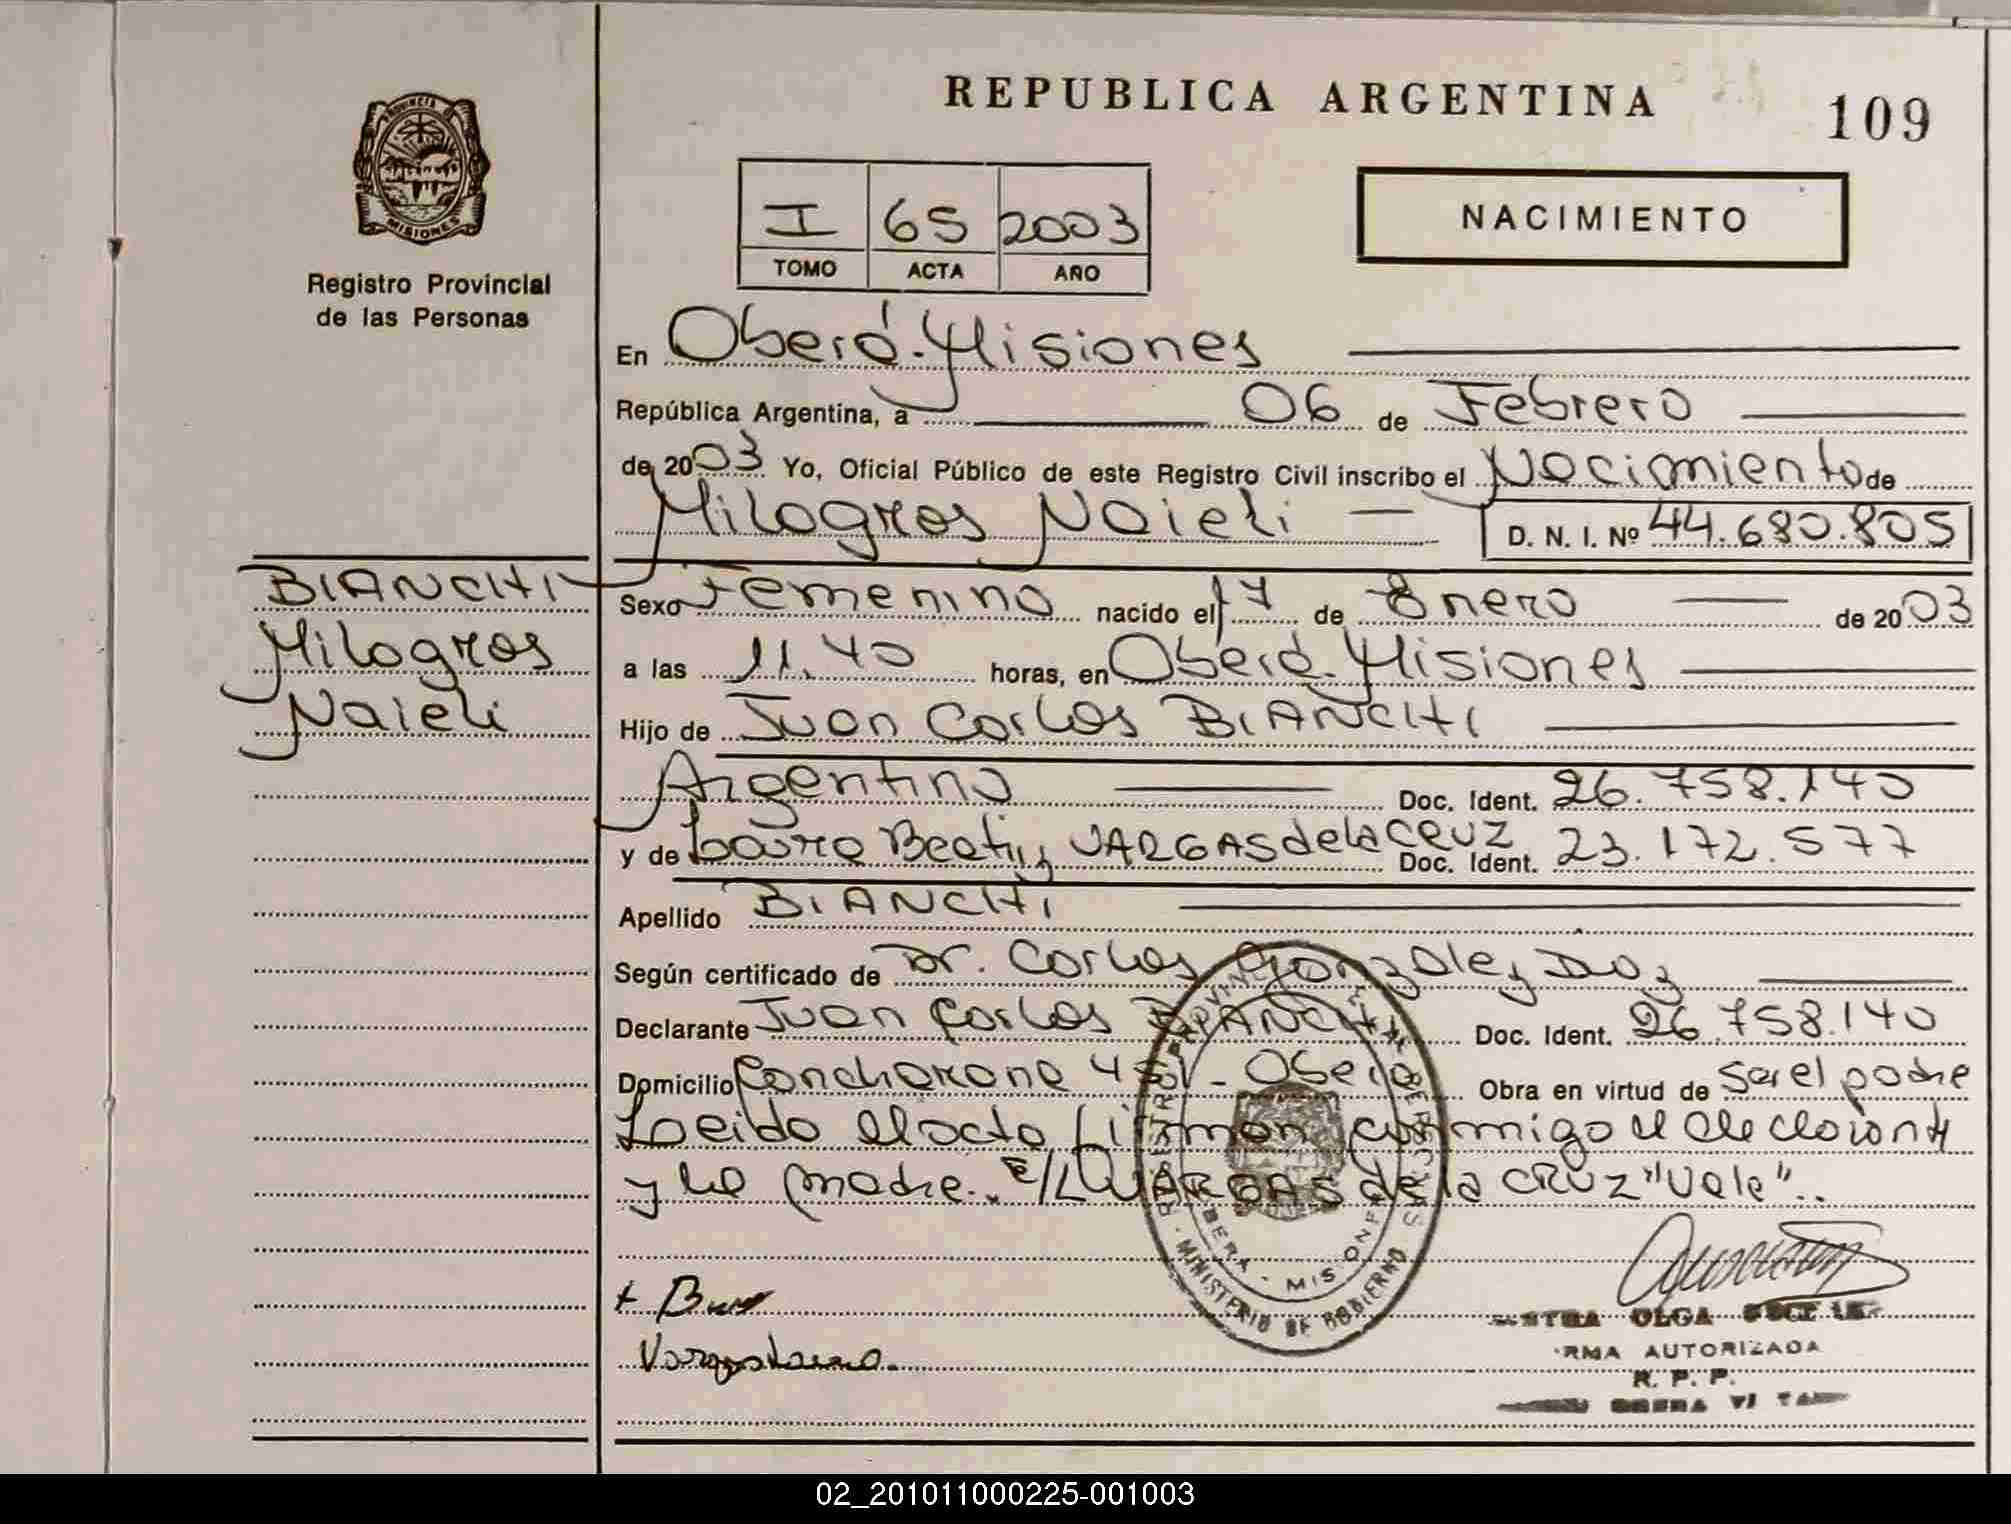 REPUBLICA ARGENTINA
109
PROVINCIA
MISIONES
Registro Provincial
de las Personas
I 65 2003
TOMO ACTA AÑO
NACIMIENTO
En Oberá. Misiones
República Argentina, a 06 de Febrero
de 2003 Yo, Oficial Público de este Registro Civil inscribo el Nacimiento de
Milagros Naieli D. N. I. Nº 44.680.805
BIANCHI
Milagros
Naieli
Sexo Femenino nacido el 17 de Enero de 2003
a las 11.40 horas, en Oberá. Misiones
Hijo de Juan Carlos BIANCHI
Argentino Doc. Ident. 26.758.140
y de Laura Beatriz VARGAS de la CRUZ Doc. Ident. 23.172.577
Apellido BIANCHI
Según certificado de Dr. Carlos Gonzalez Diaz
Declarante Juan Carlos BIANCHI Doc. Ident. 26.758.140
Domicilio 451 - Oberá Obra en virtud de ser el padre
Leido el acta firman conmigo el declarante
y la madre. E/L VARGAS de la CRUZ "Vale"..
MINISTERIO DE GOBIERNO
OBERA - MISIONES
Vargas Laura.
OLGA
FIRMA AUTORIZADA
R. P. P.
OBERA
02_201011000225-001003